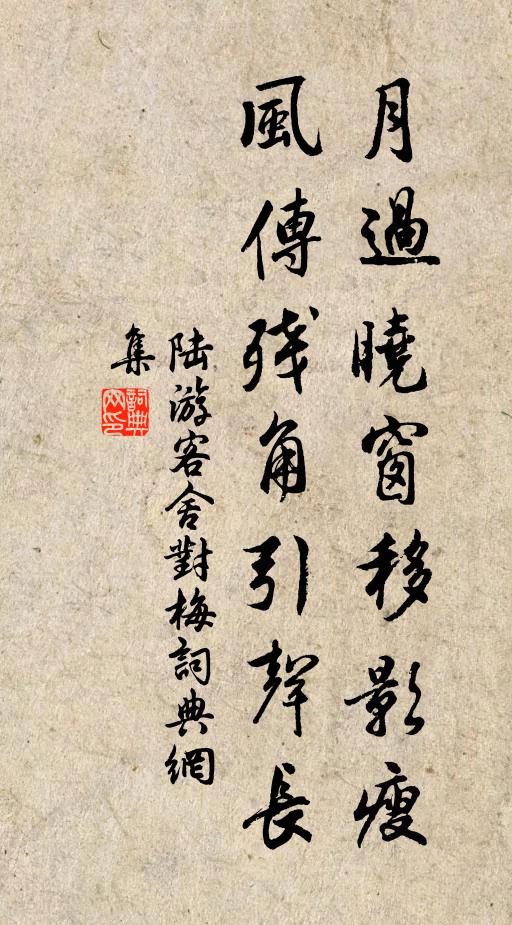 月過曉窗移影瘦
風傳殘角引聲長
陸游客舍對梅詞典網
集
詞典網印